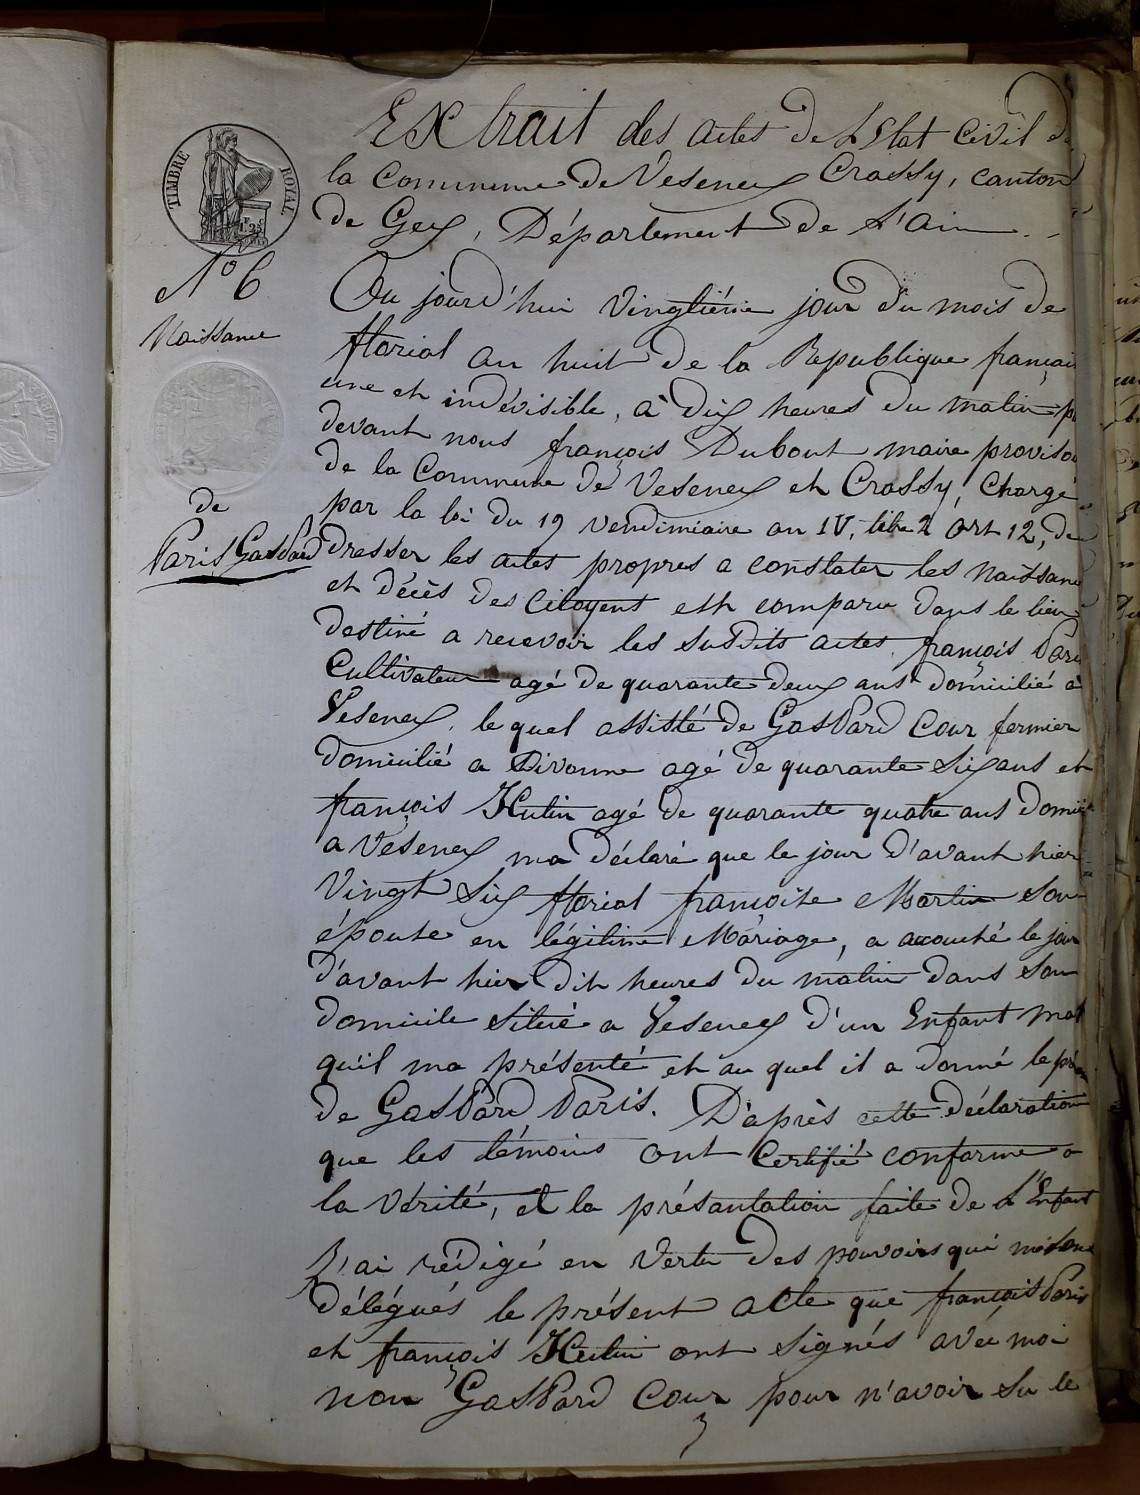 Extrait des actes de L'Etat Civil de
la Commune de Vesenex Crassy, canton
de Gex, Département de l'Ain
TIMBRE ROYAL
N° 6
Naissance
de
Paris Gaspard
Au jourd'hui vingtiéme jour du mois de
floréal an huit de la Republique français
une et indévisible, à dix heures du matin p
devant nous françois Dubout maire proviso
de la Commune de Vesenex et Crassy, Chargé
par la loi du 19 vendimiaire an IV, titre 2 art 12, de
dresser les actes propres a constater les naissan
et décès des Citoyens est comparu dans le lieu
destiné a recevoir les susdits actes, françois Paris
Cultivateur agé de quarante deux ans domicilié à
Vesenex, le quel assisté de Gaspard Cour fermier
domicilié a Divonne agé de quarante six ans et
françois Hutin agé de quarante quatre ans domici
a Vésenex ma déclaré que le jour d'avant hier
Vingt six floréal françoise Martin son
épouse en légitime Mariage, a accouché le jour
d'avant hier dix heures du matin dans son
domicile situé a Vesenex d'un Enfant mal
qu'il ma présenté et au quel il a donné le pré
de Gaspard Paris. D'après cette déclaration
que les témoins ont Certifié conforme a
la vérité, et la présantation faite de L'Enfant
J'ai rédigé en vertu des pouvoirs qui me sont
délégués le présent acte que françois Paris
et françois Hutin ont signés avec moi
non Gaspard Cour pour n'avoir su le